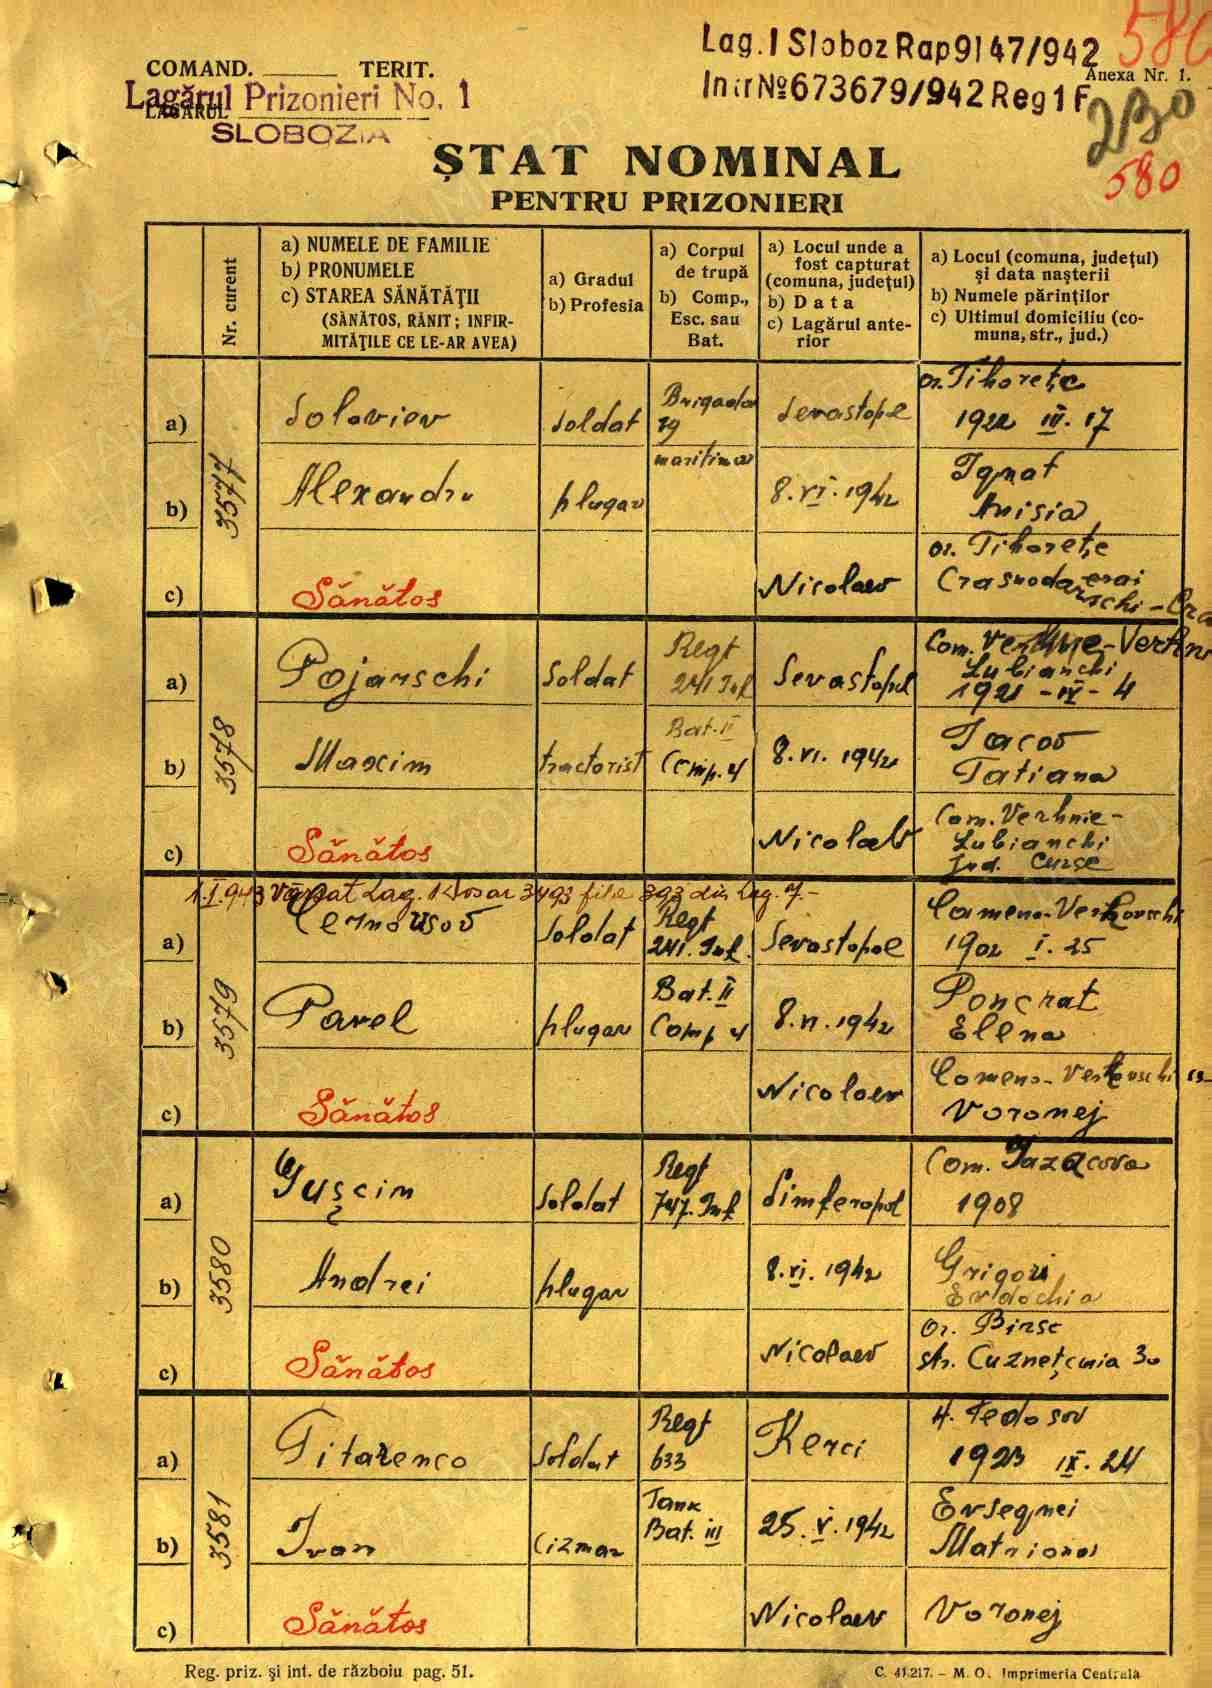 Lag. I Sloboz Rap 9147/942
586
COMAND. TERIT.
Anexa Nr. 1.
Lagărul Prizonieri No. 1
Intr № 673679/942 Reg 1 F
LAGĂRUL
230
SLOBOZIA
580
ȘTAT NOMINAL
PENTRU PRIZONIERI
Nr. curent
a) NUMELE DE FAMILIE
b) PRONUMELE
c) STAREA SĂNĂTĂȚII
(SĂNĂTOS, RĂNIT; INFIR-
MITĂȚILE CE LE-AR AVEA)
a) Gradul
b) Profesia
a) Corpul
de trupă
b) Comp.,
Esc. sau
Bat.
a) Locul unde a
fost capturat
(comuna, județul)
b) Data
c) Lagărul ante-
rior
a) Locul (comuna, județul)
și data nașterii
b) Numele părinților
c) Ultimul domiciliu (co-
muna, str., jud.)
3577
a) Soloviev
soldat
Brigada
79
maritima
Sevastopol
or. Tihorețc
1922 III. 17
b) Alexandru
plugar
8. VI. 1942
Ignat
Anisia
c) Sănătos
Nicolaev
or. Tihorețc
Crasnodarschi-Crai
3578
a) Pojarschi
soldat
Regt
241 Inf
Sevastopol
Com. Verhnie-
Lubianchi
1921 - IX - 4
b) Maxim
tractorist
Bat. II
Comp. 4
8. VI. 1942
Iacov
Tatiana
c) Sănătos
Nicolaev
Com. Verhnie-
Lubianchi
Jud. Cursc
1.I.943 Vărsat Lag. 1 dosar 3493 file 393 din Lag. 7.-
3579
a) Cernousov
Soldat
Regt
241. Inf.
Sevastopol
Cameno-Verhovschi
1902 I. 25
b) Pavel
plugar
Bat. II
Comp 4
8. VI. 1942
Poncrat
Elena
c) Sănătos
Nicolaev
Cameno-Verhovschi
Voronej
3580
a) Gușcin
soldat
Regt
747. Inf
Simferopol
Com. Iazacova
1908
b) Andrei
plugar
8. VI. 1942
Grigori
Evdochia
c) Sănătos
Nicolaev
Or. Birsc
str. Cuznețcnia 30
3581
a) Titarenco
Soldat
Regt
633
Kerci
H. Fedosov
1923 IX. 24
b) Ivan
Cizmar
Tank
Bat. III
25. V. 1942
Evsegnei
Matriona
c) Sănătos
Nicolaev
Voronej
Reg. priz. și int. de războiu pag. 51.
C. 41.217. – M. O. Imprimeria Centrala